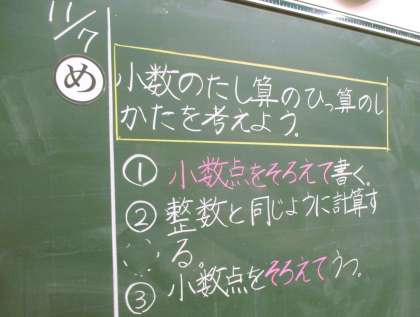 11/7
め
小数のたし算のひっ算のし
かたを考えよう。
① 小数点をそろえて書く。
② 整数と同じように計算す
る。
③ 小数点をそろえてうつ。